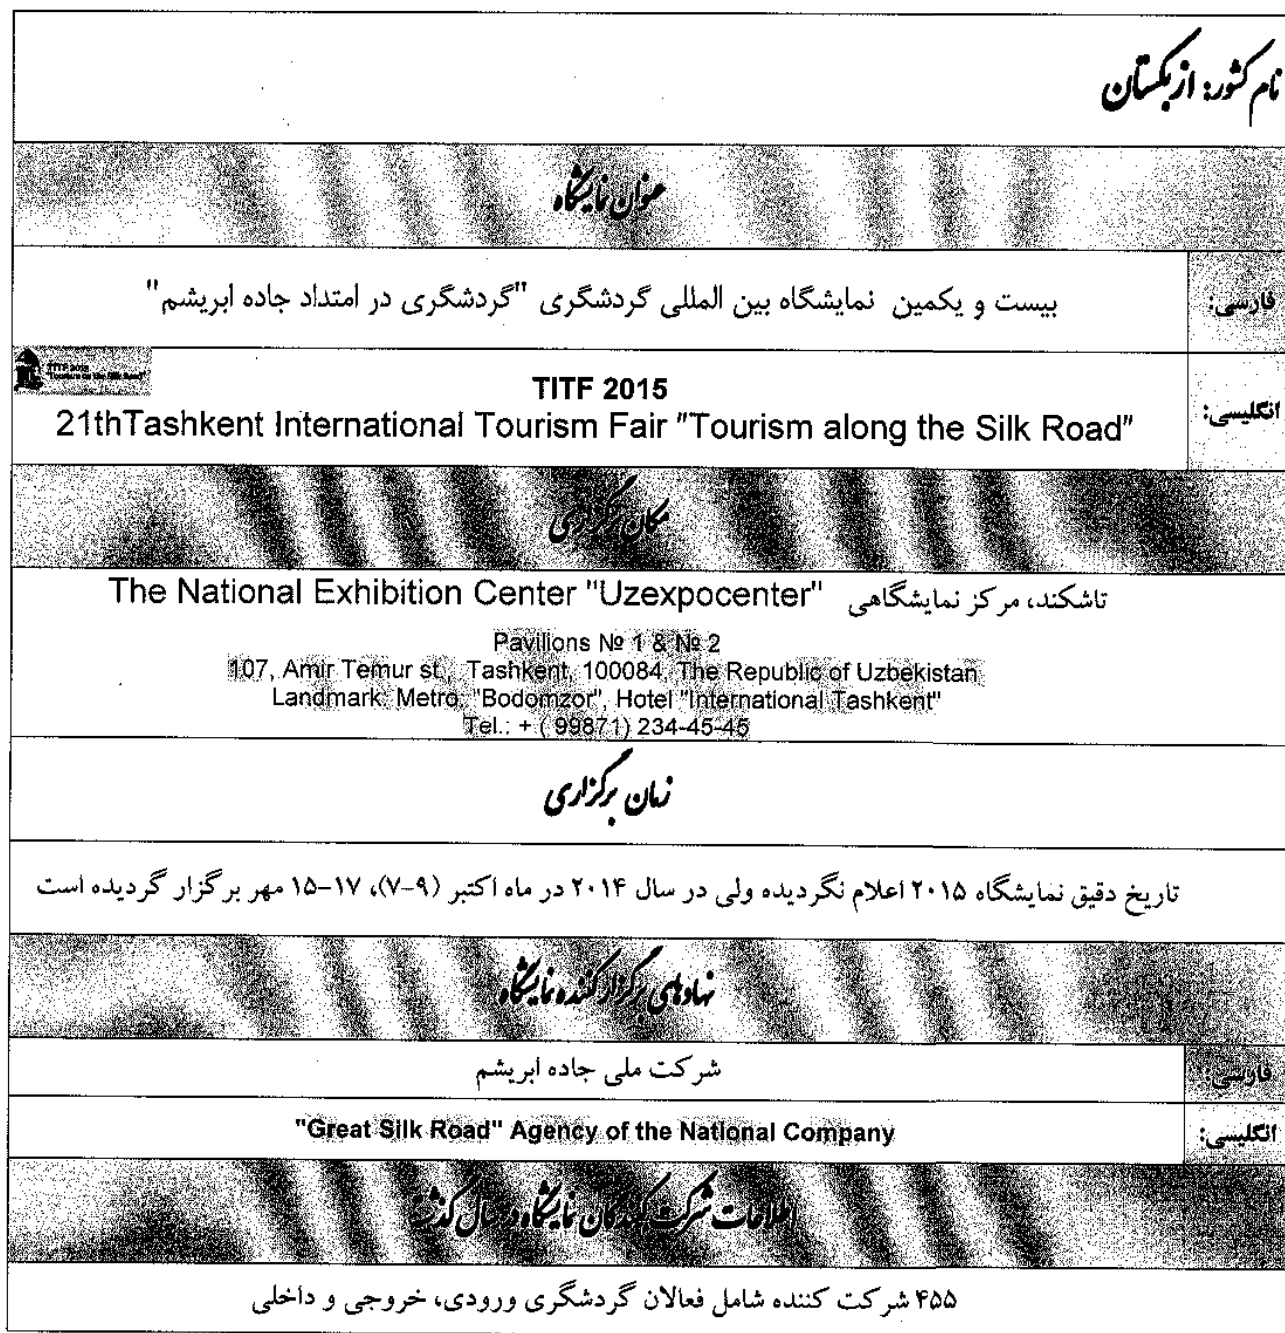 نام کشور: ازبکستان
عنوان نمایشگاه
فارسی:
بیست و یکمین نمایشگاه بین المللی گردشگری "گردشگری در امتداد جاده ابریشم"
انگلیسی:
TITF 2015
"Tourism on the Silk Road"
TITF 2015
21thTashkent International Tourism Fair "Tourism along the Silk Road"
مکان برگزاری
تاشکند، مرکز نمایشگاهی The National Exhibition Center "Uzexpocenter"
Pavilions № 1 & № 2
107, Amir Temur st., Tashkent, 100084, The Republic of Uzbekistan
Landmark: Metro, "Bodomzor", Hotel "International Tashkent"
Tel.: + ( 99871) 234-45-45
زمان برگزاری
تاریخ دقیق نمایشگاه ۲۰۱۵ اعلام نگردیده ولی در سال ۲۰۱۴ در ماه اکتبر (۹-۷)، ۱۷-۱۵ مهر برگزار گردیده است
نهادهای برگزار کننده نمایشگاه
فارسی:
شرکت ملی جاده ابریشم
انگلیسی:
"Great Silk Road" Agency of the National Company
اطلاعات شرکت کنندگان نمایشگاه در سال گذشته
۴۵۵ شرکت کننده شامل فعالان گردشگری ورودی، خروجی و داخلی